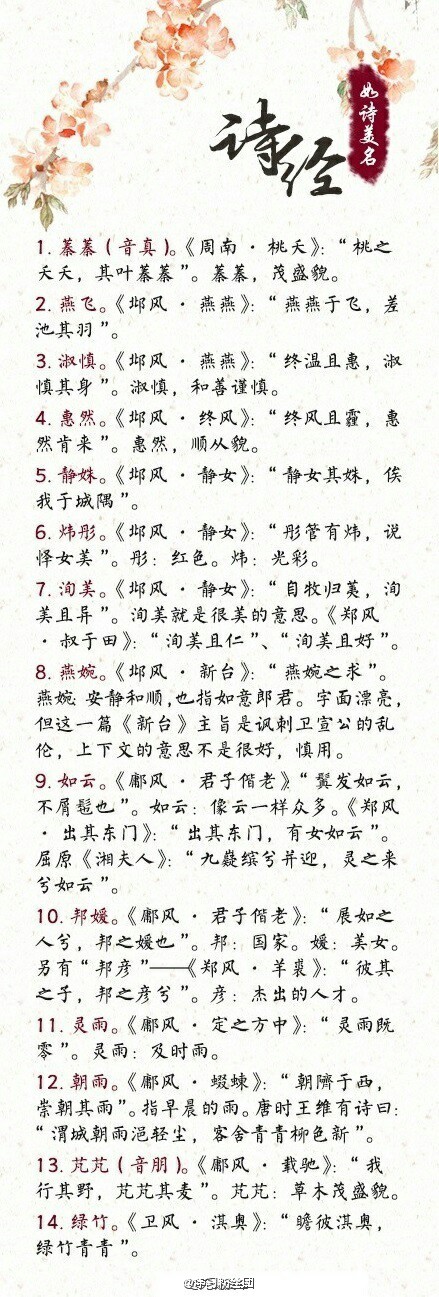 诗经
如诗美名
1. 蓁蓁（音真）。《周南 · 桃夭》：“桃之
夭夭，其叶蓁蓁”。蓁蓁，茂盛貌。
2. 燕飞。《邶风 · 燕燕》：“燕燕于飞，差
池其羽”。
3. 淑慎。《邶风 · 燕燕》：“终温且惠，淑
慎其身”。淑慎，和善谨慎。
4. 惠然。《邶风 · 终风》：“终风且霾，惠
然肯来”。惠然，顺从貌。
5. 静姝。《邶风 · 静女》：“静女其姝，俟
我于城隅”。
6. 炜彤。《邶风 · 静女》：“彤管有炜，说
怿女美”。彤：红色。炜：光彩。
7. 洵美。《邶风 · 静女》：“自牧归荑，洵
美且异”。洵美就是很美的意思。《郑风
· 叔于田》：“洵美且仁”、“洵美且好”。
8. 燕婉。《邶风 · 新台》：“燕婉之求”。
燕婉 安静和顺，也指如意郎君。字面漂亮，
但这一篇《新台》主旨是讽刺卫宣公的乱
伦，上下文的意思不是很好，慎用。
9. 如云。《鄘风 · 君子偕老》“鬒发如云，
不屑髢也”。如云：像云一样众多。《郑风
· 出其东门》：“出其东门，有女如云”。
屈原《湘夫人》：“九嶷缤兮并迎，灵之来
兮如云”。
10. 邦媛。《鄘风 · 君子偕老》：“展如之
人兮，邦之媛也”。邦：国家。媛：美女。
另有“邦彦”——《郑风 · 羊裘》：“彼其
之子，邦之彦兮”。彦：杰出的人才。
11. 灵雨。《鄘风 · 定之方中》：“灵雨既
零”。灵雨：及时雨。
12. 朝雨。《鄘风 · 蝃蝀》：“朝隮于西，
崇朝其雨”。指早晨的雨。唐时王维有诗曰：
“渭城朝雨浥轻尘，客舍青青柳色新”。
13. 芃芃（音朋）。《鄘风 · 载驰》：“我
行其野，芃芃其麦”。芃芃：草木茂盛貌。
14. 绿竹。《卫风 · 淇奥》：“瞻彼淇奥，
绿竹青青”。